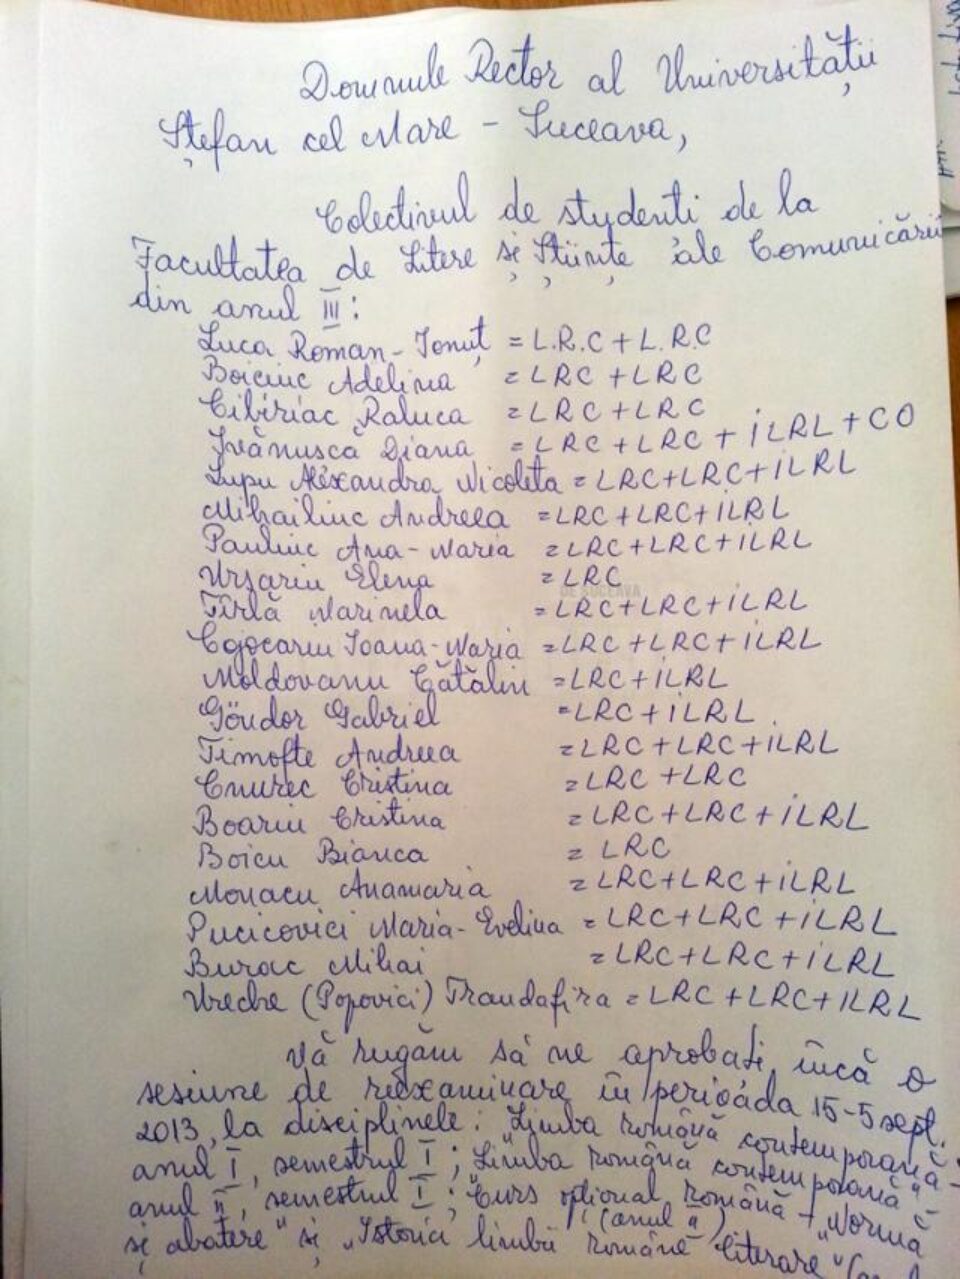 Domnule Rector al Universității
Ștefan cel Mare - Suceava,
Colectivul de studenti de la
Facultatea de Litere și Științe ale Comunicării
din anul III:
Luca Roman-Ionuț = L.R.C + L.R.C
Boiciuc Adelina = LRC + LRC
Cibiriac Raluca = LRC + LRC
Ivănușcă Diana = LRC + LRC + ILRL + CO
Lupu Alexandra Nicoleta = LRC+LRC+ILRL
Mihailiuc Andreea = LRC+LRC+ILRL
Pauliuc Ana-Maria = LRC+LRC+ILRL
Ursariu Elena = LRC
Tîrlă Marinela = LRC+LRC+ILRL
Cojocariu Ioana-Maria = LRC+LRC+ILRL
Moldovanu Cătălin = LRC+ILRL
Göndör Gabriel = LRC+ILRL
Timofte Andreea = LRC+LRC+ILRL
Cnurec Cristina = LRC+LRC
Boariu Cristina = LRC+LRC+ILRL
Boicu Bianca = LRC
Monacu Anamaria = LRC+LRC+ILRL
Pucicovici Maria-Evelina = LRC+LRC+ILRL
Burac Mihai = LRC+LRC+ILRL
Vreche (Popovici) Trandafira = LRC+LRC+ILRL
Vă rugăm să ne aprobati încă o
sesiune de reexaminare în perioada 15-5 sept.
2013, la disciplinele: „Limba română contemporană -
anul I, semestrul I; Limba română contemporană" -
anul II, semestrul I; Curs opțional română - „Normă
și abatere" (anul II) și „Istoria limbii române literare"